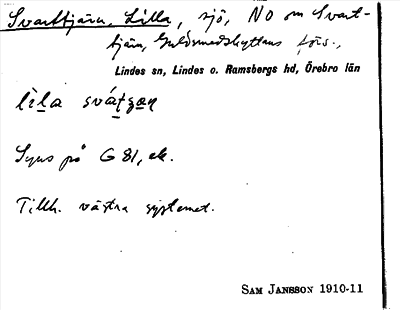 Svarttjärn, Lilla, sjö, NO om Svart-
tjärn, Guldsmedshyttans förs.,
Lindes sn, Lindes o. Ramsbergs hd, Örebro län
Syns på G 81, ek.
Tillh. västra systemet.
SAM JANSSON 1910-11